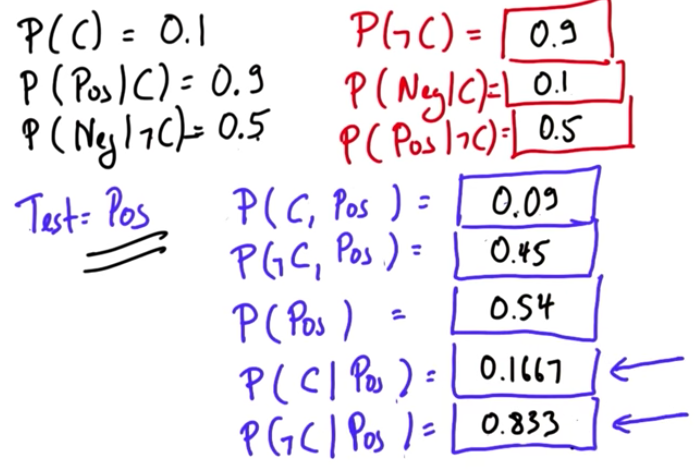 P(C) = 0.1 P(¬C) = 0.9
P(Pos|C) = 0.9 P(Neg|C)= 0.1
P(Neg|¬C)= 0.5 P(Pos|¬C)= 0.5
Test= Pos P(C, Pos) = 0.09
P(¬C, Pos) = 0.45
P(Pos) = 0.54
P(C|Pos) = 0.1667 ←
P(¬C|Pos) = 0.833 ←